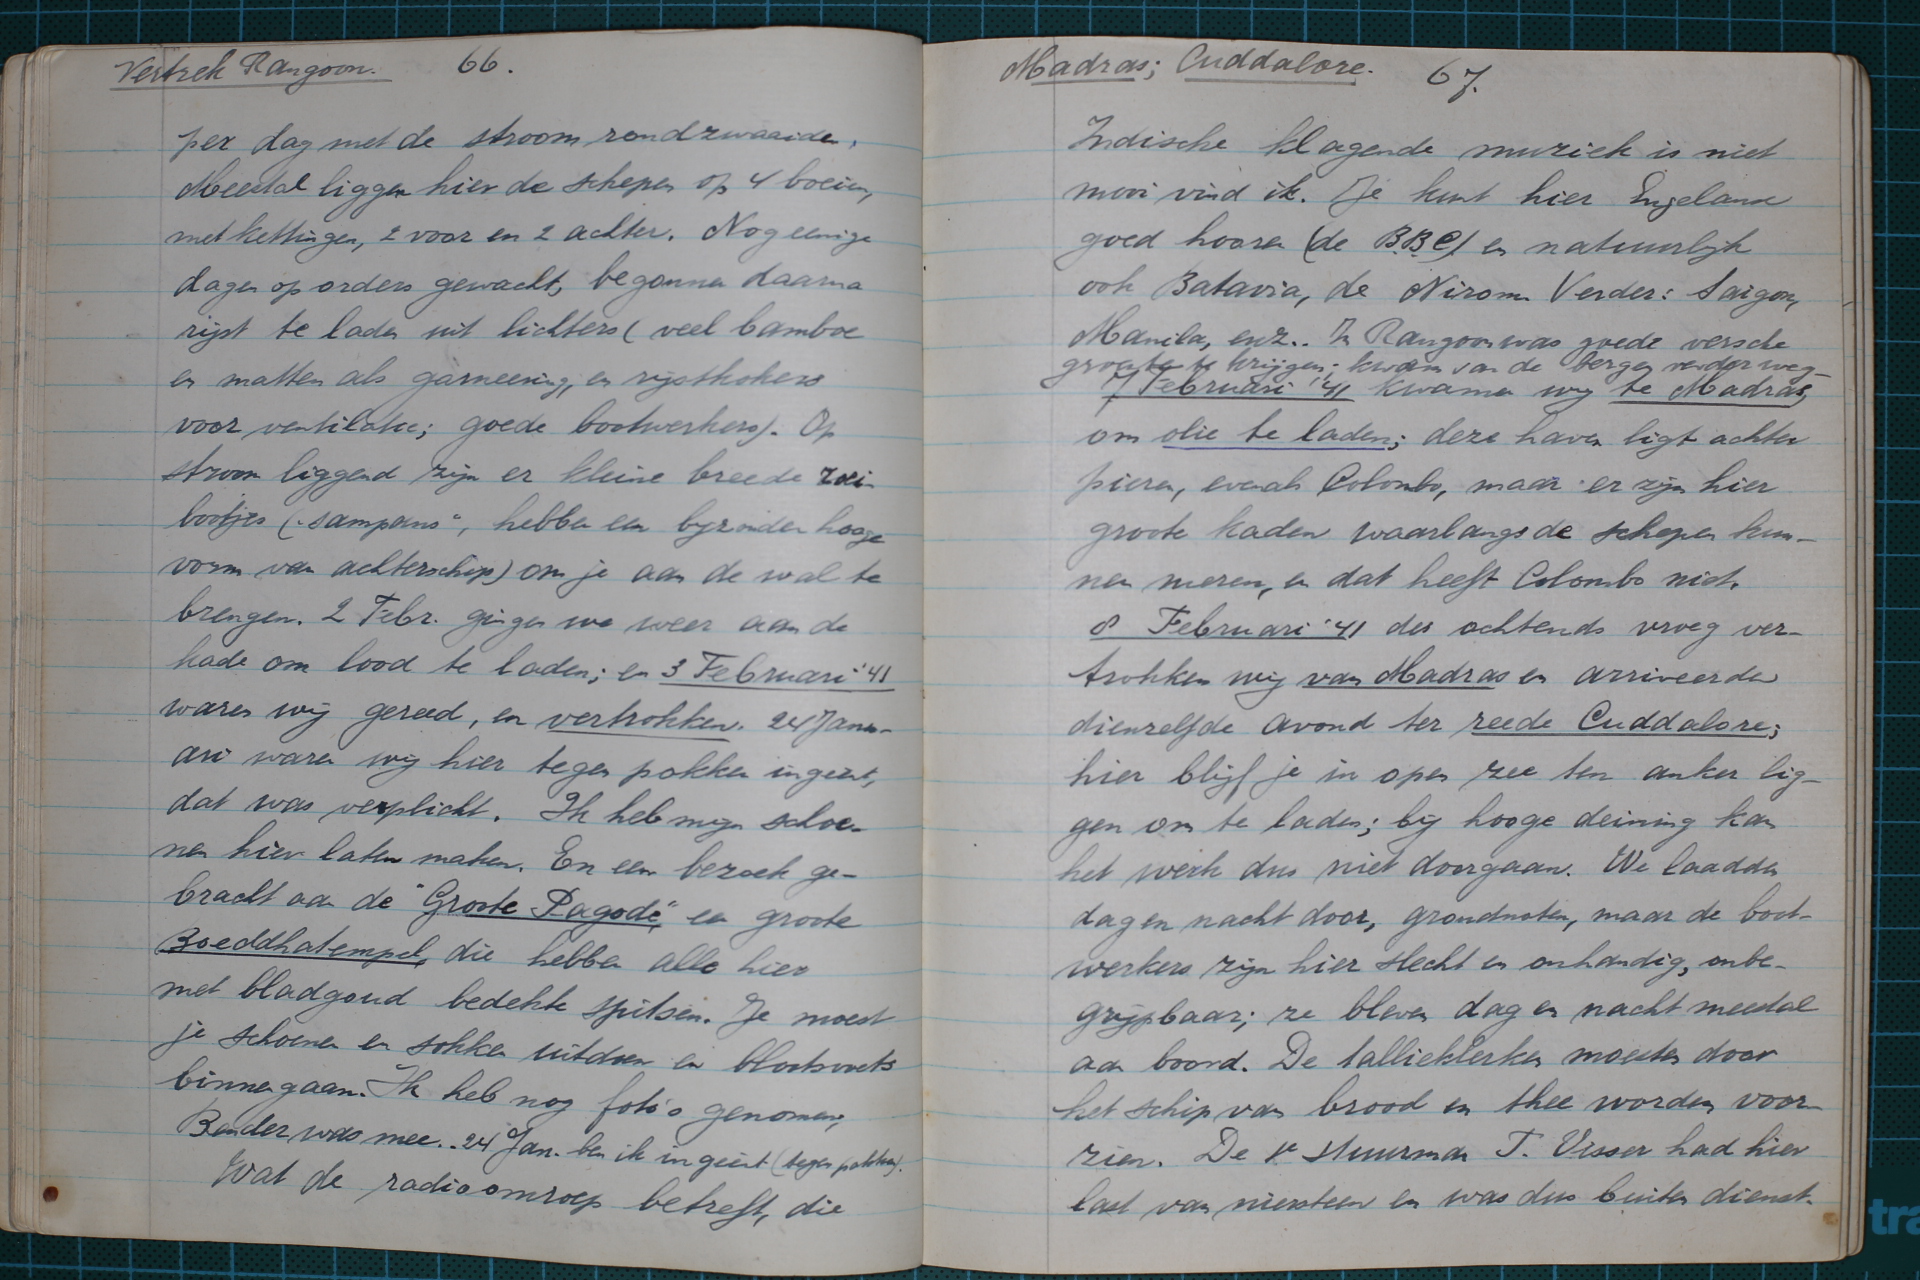 Vertrek Rangoon. 66.
per dag met de stroom rondzwaaiden.
Meestal liggen hier de schepen op 4 boeien,
met kettingen, 2 voor en 2 achter. Nog eenige
dagen op orders gewacht, begonnen daarna
rijst te laden uit lichters (veel bamboe
en matten als garneering, en rijstkokers
voor ventilatie; goede bootwerkers). Op
stroom liggend zijn er kleine breede roei-
bootjes ("sampans", hebben een bijzonder hooge
vorm van achterschip) om je aan de wal te
brengen. 2 Febr. gingen we weer aan de
kade om lood te laden; en 3 Februari '41
waren wij gereed, en vertrokken. 24 Janu-
ari waren wij hier tegen pokken ingeënt,
dat was verplicht. Ik heb mijn schoe-
nen hier laten maken. En een bezoek ge-
bracht aan de "Groote Pagode", een groote
Boeddhatempel, die hebben alle hier
met bladgoud bedekte spitsen. Je moest
je schoenen en sokken uitdoen en blootsvoets
binnengaan. Ik heb nog foto's genomen,
Bander was mee. 24 Jan. ben ik ingeënt (tegen pokken).
Wat de radioomroep betreft, die
Madras; Cuddalore. 67.
Indische klagende muziek is niet
mooi vind ik. Je kunt hier Engeland
goed hooren (de B.B.C.) en natuurlijk
ook Batavia, de Nirom. Verder: Saigon,
Manila, enz.. In Rangoon was goede versche
groente te krijgen; kwam van de bergen verder weg-
7 Februari '41 kwamen wij te Madras,
om olie te laden; deze haven ligt achter
pieren, evenals Colombo, maar er zijn hier
groote kaden waarlangs de schepen kun-
nen meren, en dat heeft Colombo niet.
8 Februari '41 des ochtends vroeg ver-
trokken wij van Madras en arriveerden
dienzelfde avond ter reede Cuddalore;
hier blijf je in open zee ten anker lig-
gen om te laden; bij hooge deining kan
het werk dus niet doorgaan. We laadden
dag en nacht door, grondnoten, maar de boot-
werkers zijn hier slecht en onhandig, onbe-
grijpbaar; ze bleven dag en nacht meestal
aan boord. De tallieklerken moesten door
het schip van brood en thee worden voor-
zien. De 1e stuurman T. Visser had hier
last van niersteen en was dus buiten dienst.